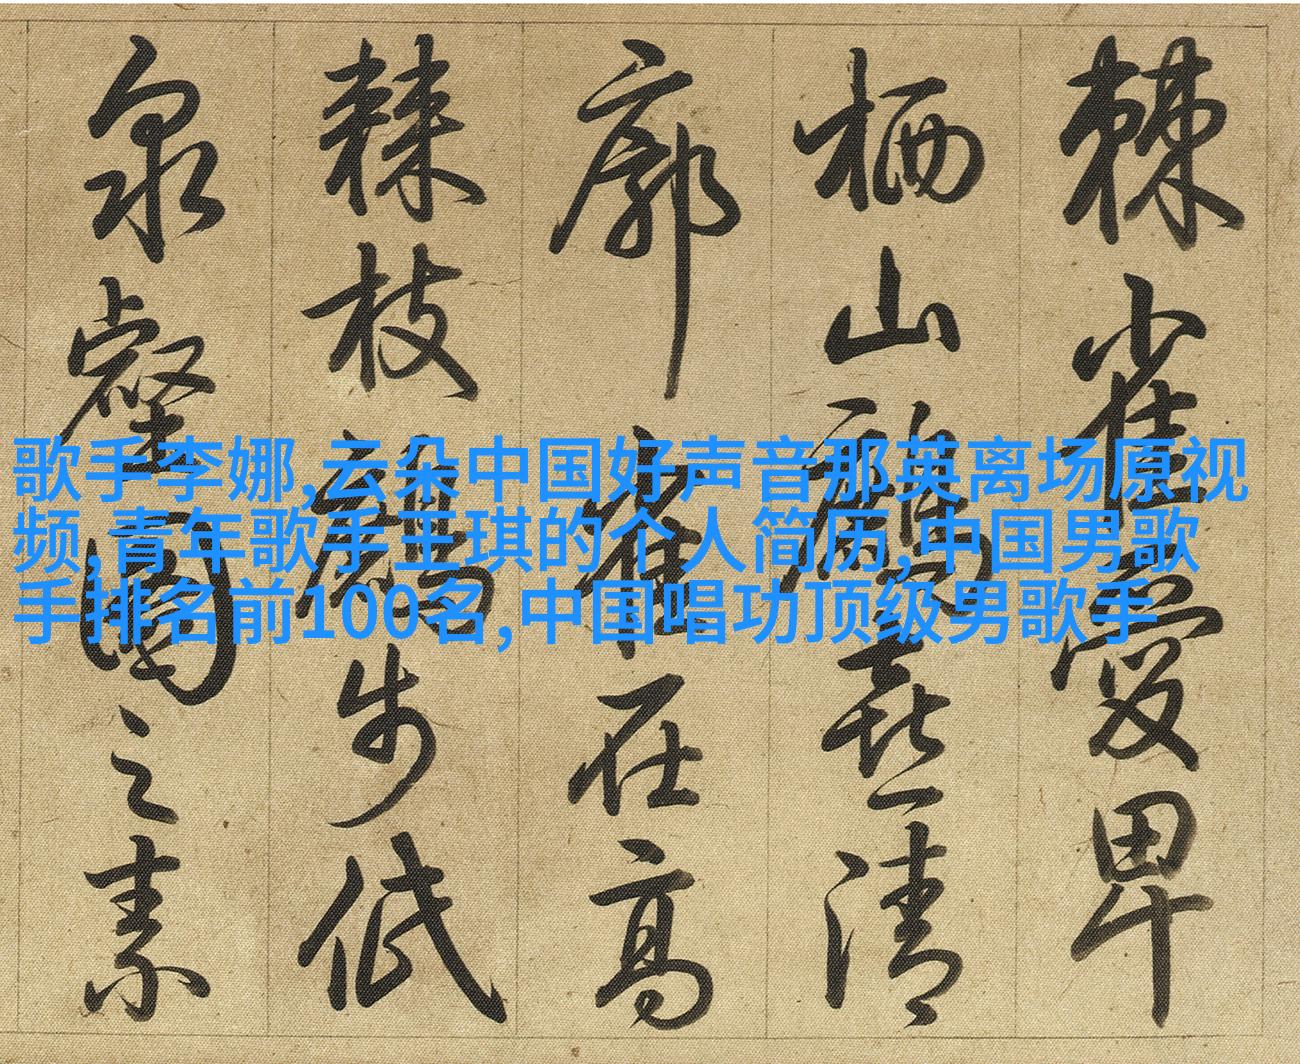 棘雀愛卑
栖山鷓喜清
廓雀在高
棘枝鷓步低
泉壑圖之素
歌手李娜,云朵中国好声音那英离场原视
频,青年歌手王琪的个人简历,中国男歌
手排名前100名,中国唱功顶级男歌手